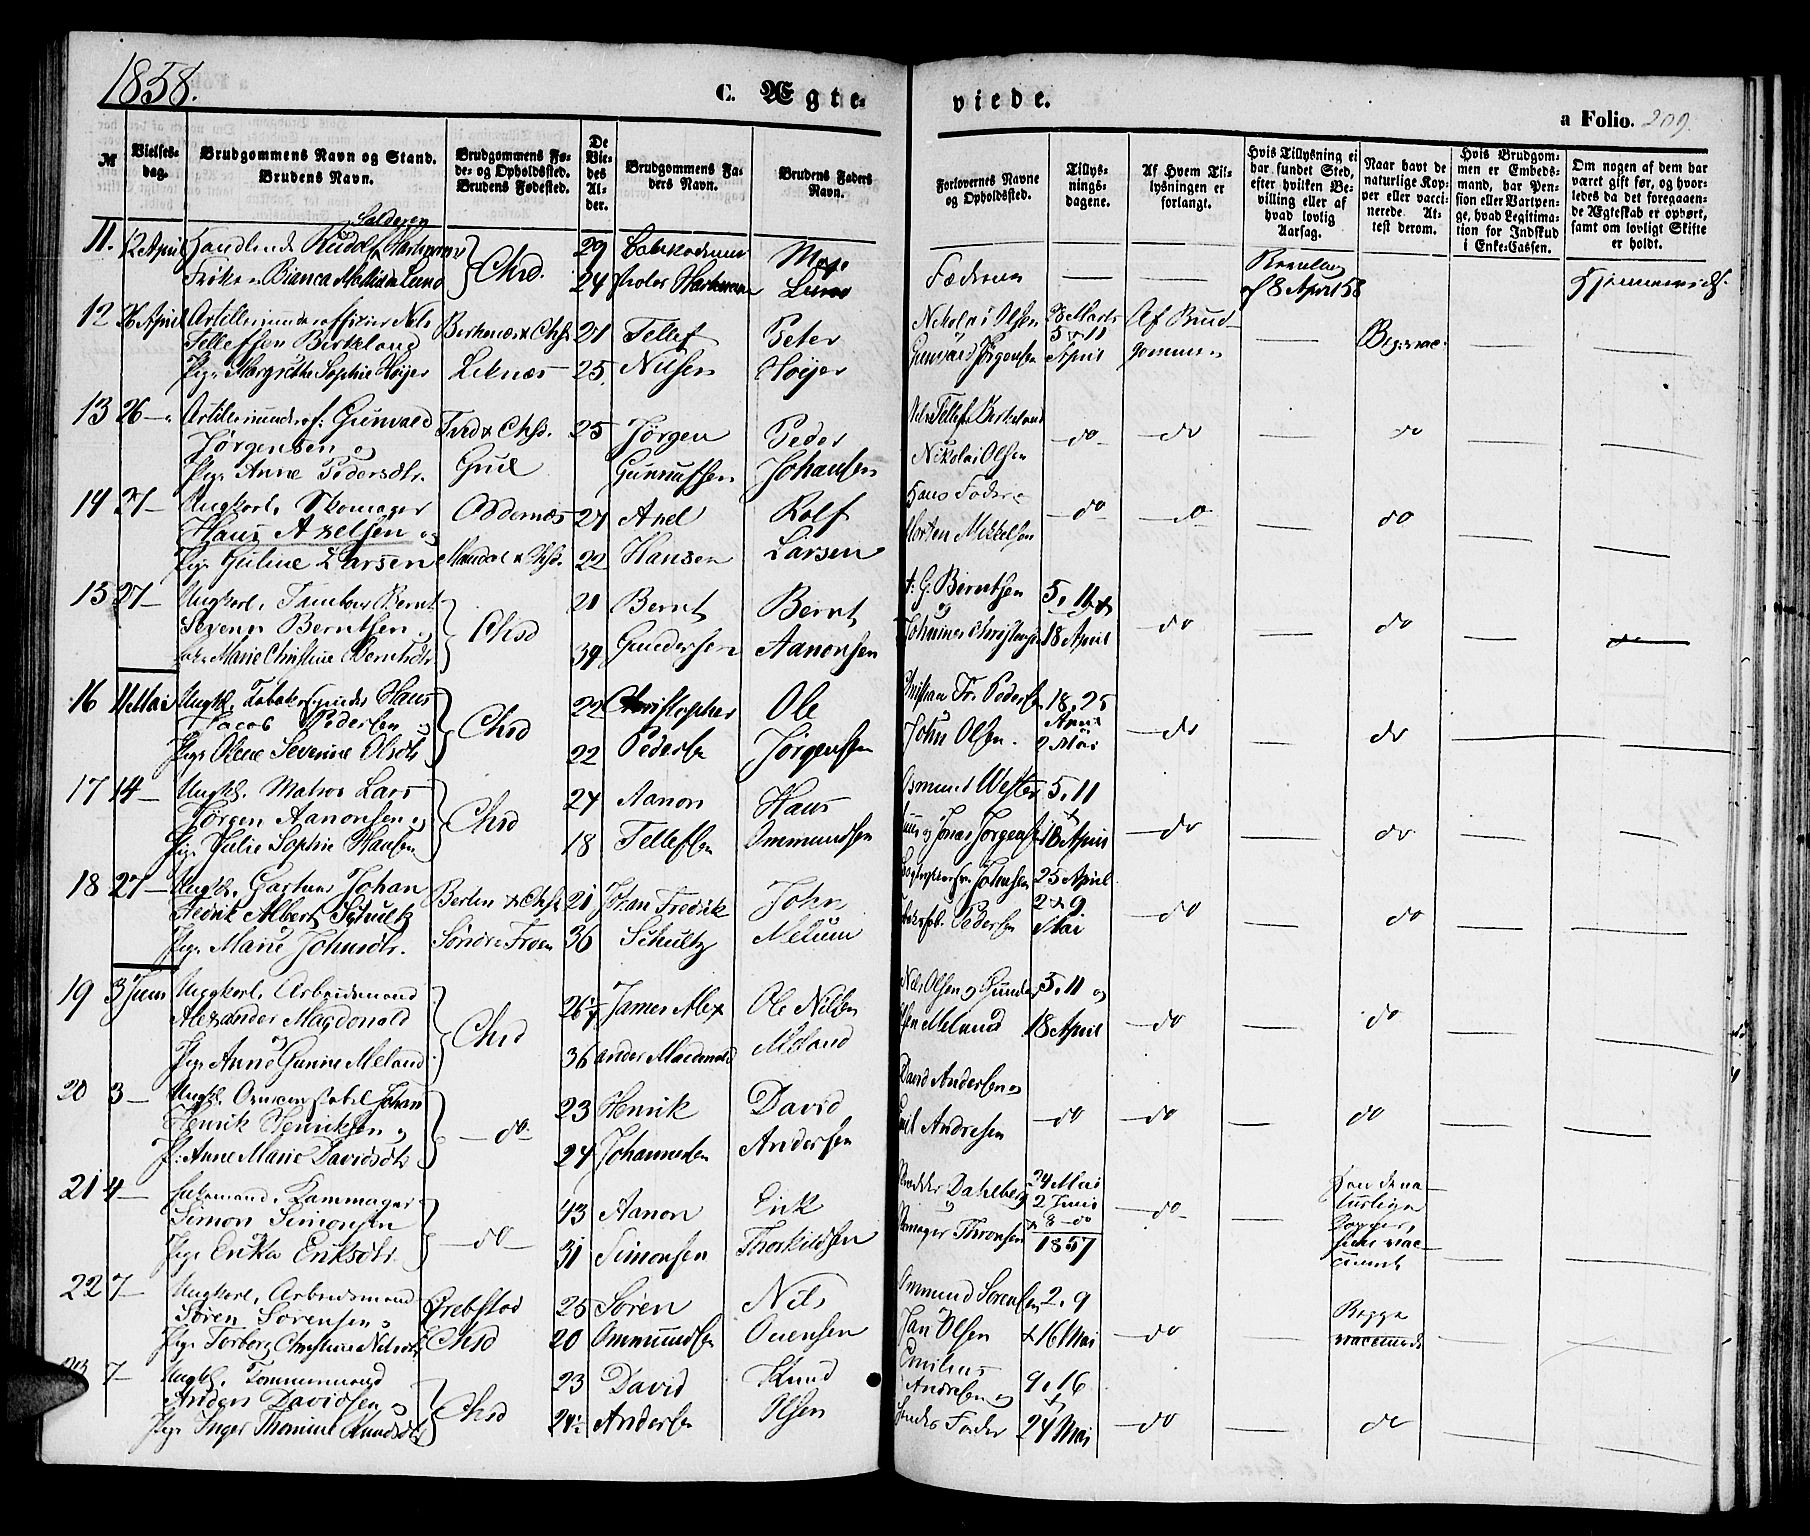 1858.
C. Ægte-
viede.
a Folio. 209.
M
Vielses-
dag.
Brudgommens Navn og Stand.
Brudens Navn.
Brudgommens Fø-
de- og Opholdssted.
Brudens Fødested.
De
Vie-
des
Al-
der.
Brudgommens Fa-
ders Navn.
Brudens Faders
Navn.
Forlovernes Navne
og Opholdssted.
Tillys-
nings-
dagene.
Af Hvem Til-
lysningen er
forlangt.
Hvis Tillysning ei
har fundet Sted,
efter hvilken Be-
villing eller af
hvad lovlig
Aarsag.
Naar havt de
naturlige Kop-
per eller vacci-
nerede. At-
test derom.
Hvis Brudgom-
men er Embeds-
mand, har Pen-
sion eller Vartpen-
ge, hvad Legitima-
tion for Indskud
i Enke-Cassen.
Om nogen af dem har
været gift før, og hvor-
ledes da det foregaaen-
de Ægteskab er ophørt,
samt om lovligt Skifte
er holdt.
11. 12 April Handlende Rudolf
Frøken Bianca Mathilda Lund
Chsd.
29
24
Lund
Fædrene
— —
af 8 April 58
—
12 26 April Artilleriunderofficier Nils
Telleffsen Birkeland
Pige Margrethe Sophie Høyer
Birkenæs & Chsd
Leknæs
21
25.
Tellef
Nilsen
Peter
Høyer
Nikolai Olsen
Gunvald Jørgensen
28 Marts
5 & 11
April
Af Brud-
gommen
—
Beg: vac.
— —
13 26 — Artilleriunderof: Gunvald
Jørgensen og
Pige Anne Pedersdtr.
Tved & Chsd.
25
Jørgen
Gunnufsen
Peder
Johansen
Nils Tellefs Birkeland
Nikolai Olsen
—do— —do — do — —
14 27 — Ungkarl, Skomager
Hans Axelsen og
Pige Guline Larsen
Oddernæs
Mandal & Chsd.
27
22
Axel
Hansen
Rolf
Larsen
Morten Mikkelsen
—do— —do — do — —
15 27 — Ungkarl, Tambour Bernt
Severin Berntsen og
Marie Christine Berntsdtr
Chsd
21
39
Bernt
Gundersen
Bernt
Aanonsen
A: G: Berntsen
og
Johannes Christensen
5, 11 &
18 April
—do — do — do
16 11 Mai Ungkl. Hans
Jacob Pedersen og
Pige Olene Severine Olsdtr
Chsd
22
22
Christopher
Pedersen
Ole
Jørgensen
Christian Fr. Pedersen
John Olsen.
18, 25
April
2 Mai
—do — do — —
17 14 — Ungkl. Matros Lars
Jørgen Aanonsen og
Pige Julie Sophie Hansen
Chsd
24
18
Aanon
Tellefsen
Hans
Ommundsen
Osmund Wester
og Jonas Jørgensen
5, 11
&
18 April
—do — do — —
18 27 — Ungkl. Gartner Johan
Fredrik Albert Schultz
Pige Marie Johnsdtr.
Berlin & Chsd
Søndre
21
36
Johan Fredrik
Schultz
John
Melum
Johnsen
Pedersen
25 April
2 & 9
Mai
—do — do — —
19 3 Juni Ungkarl, Arbeidsmand
Alexander Magdonald
og
Pige Anne Gurine Meland
Chsd
26½
36
James Alex
ander Macdonald
Ole Nilsen
Meland
Nils Olsen og Gunder
Olsen Meland
5, 11 og
18 April
—do — do — —
20 3 — Ungkl. Johan
Henrik Henriksen og
P: Anne Marie Davidsdtr
—do—
23
24
Henrik
Johannesen
David
Andersen
David Andersen og
Emil Andresen
—do —do — do — —
21 4 — Simon Simonsen
og
Pige Erika Eriksdtr.
—do—
43
31
Aanon
Simonsen
Erik
Thorkildsen
Dahlberg
og
Thronsen
24 Mai
2 Juni
& 8 — do
1857
—do— —
Har de na-
turlige
Kopper,
— —
22 7 — Ungkarl, Arbeidsmand
Søren Sørensen og
Pige Torborg Christine Nilsdtr
Grebstad
Chsd
25
20
Søren
Ommundsen
Nils
Ouensen
Ommund Sørensen
Jan Olsen
2, 9
& 16 Mai
—do —
Begge
vaccinerede
— —
23 7 — Ungkl. Tømmermand
Anders Davidsen og
Pige Inger Thomine Knudsdtr
Chsd
23
24½
David
Andersen
Knud
Olsen
Andresen og
9, 16
&
24 Mai
—do — do — —